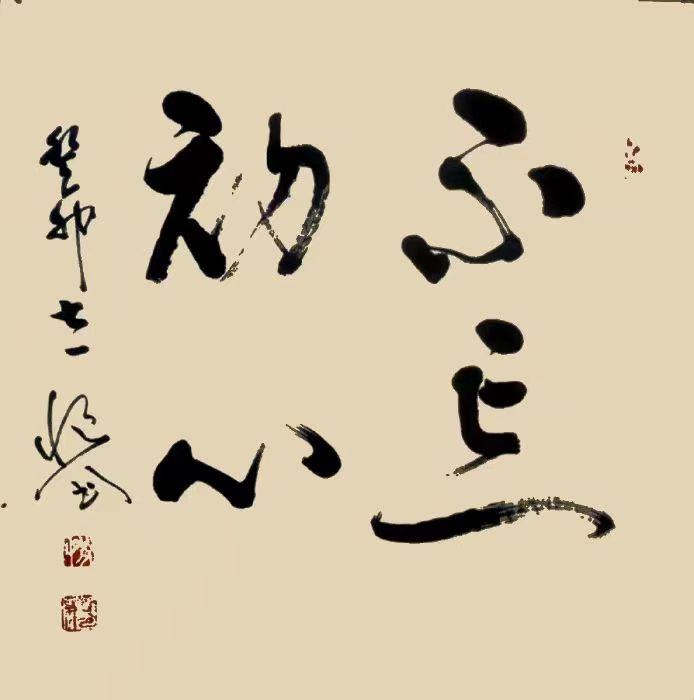 不忘
初心
癸卯 七一